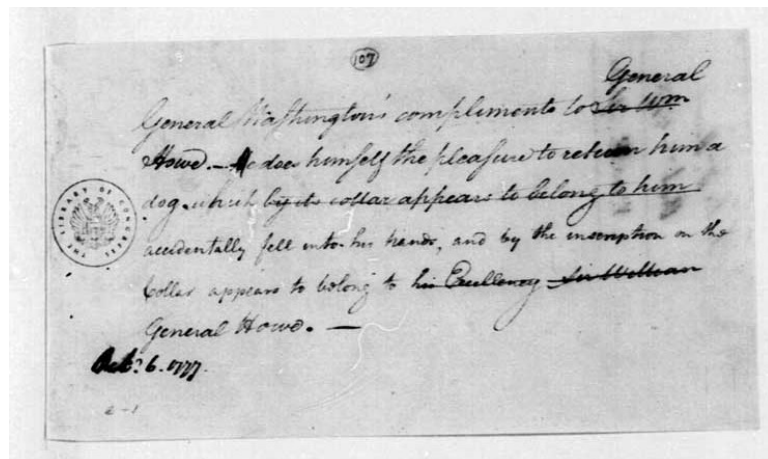 107
General
General Washington's compliments to Sir Wm
Howe. – He does himself the pleasure to return him a
dog, which by its collar appears to belong to him
accidentally fell into his hands, and by the inscription on the
Collar appears to belong to his Excellency Sir William
General Howe. —
Octr. 6. 1777.
THE LIBRARY OF CONGRESS